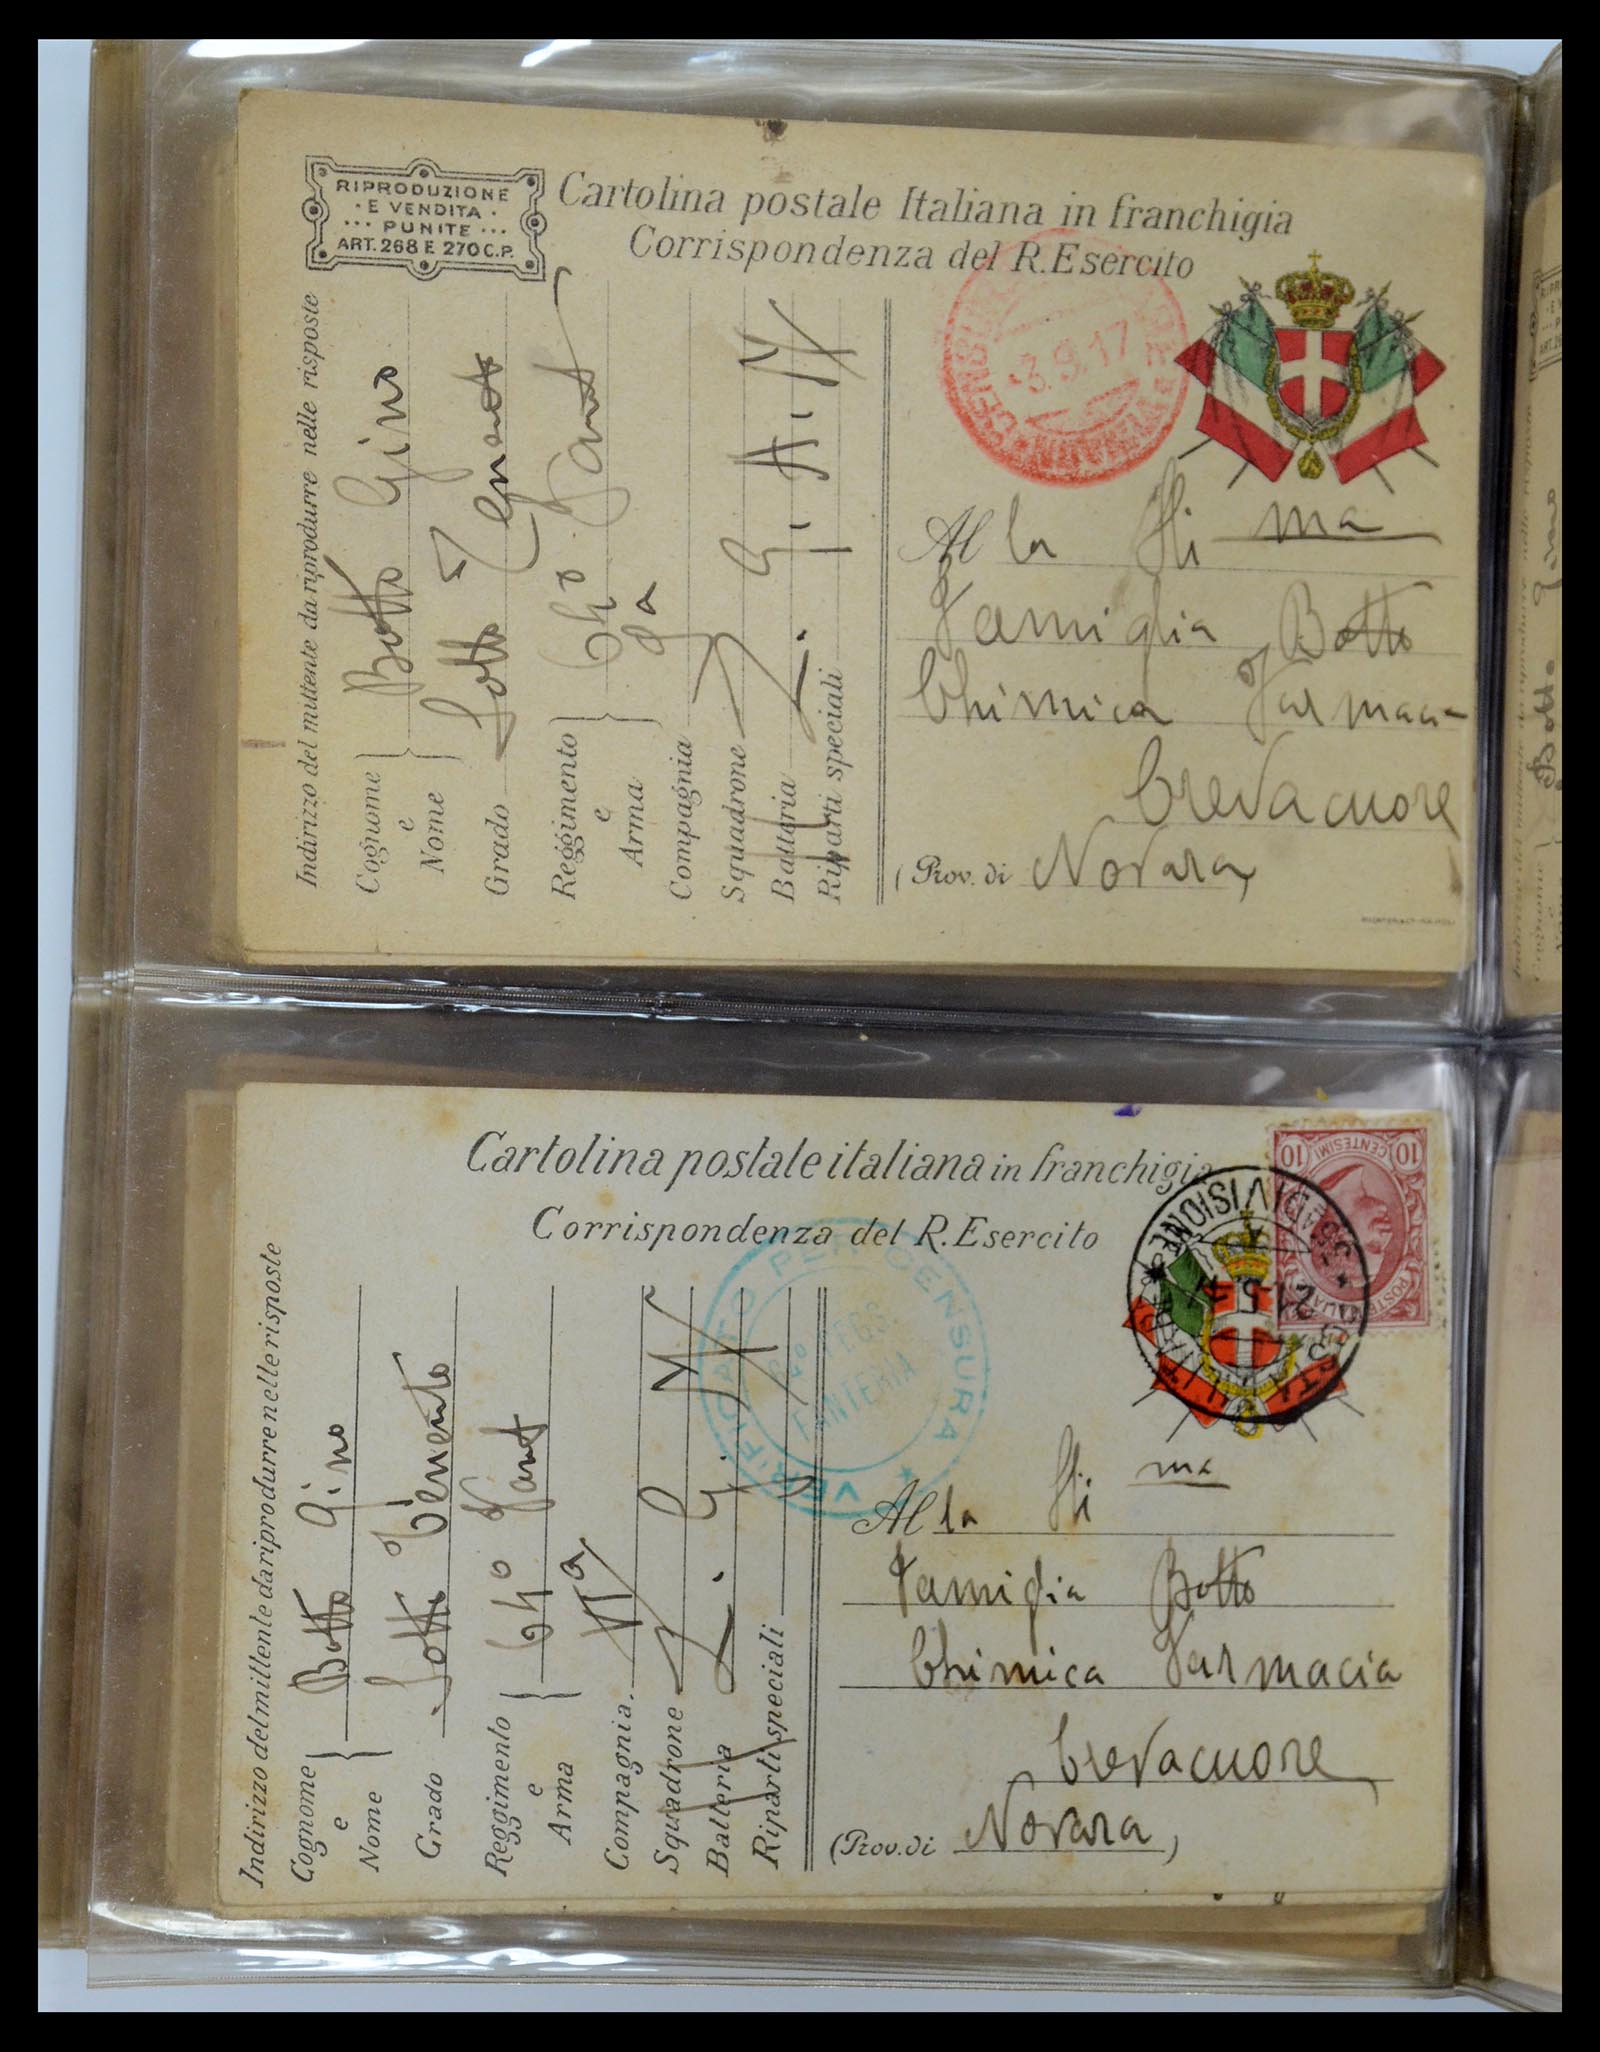 RIPRODUZIONE
· E VENDITA ·
··· PUNITE ···
ART. 268 E 270 C.P.
Cartolina postale Italiana in franchigia
Corrispondenza del R. Esercito
Indirizzo del mittente da riprodurre nelle risposte
Cognome
e
Nome
Botto Gino
Grado
Sotto Tenente
Reggimento
e
Arma
64° Fant
Compagnia
Squadrone
Batteria
Riparti speciali
3.9.17
Alla
ma
Famiglia Botto
Chimica Farmac-
Crevacuore
(Prov. di Novara)
Cartolina postale italiana in franchigia
Corrispondenza del R. Esercito
Indirizzo del mittente da riprodurre nelle risposte
Cognome
e
Nome
Botto Gino
Grado
Sotto Tenente
Reggimento
e
Arma
64° Fant
Compagnia.
VIa
Squadrone
Batteria
Riparti speciali
VERIFICATO PER CENSURA
64° REGG.
FANTERIA
10 CENTESIMI 10
POSTE ITALIANE
POSTA MILITARE
DIVISIONE
Alla
ma
Famiglia Botto
Chimica Farmacia
Crevacuore
(Prov. di Novara)